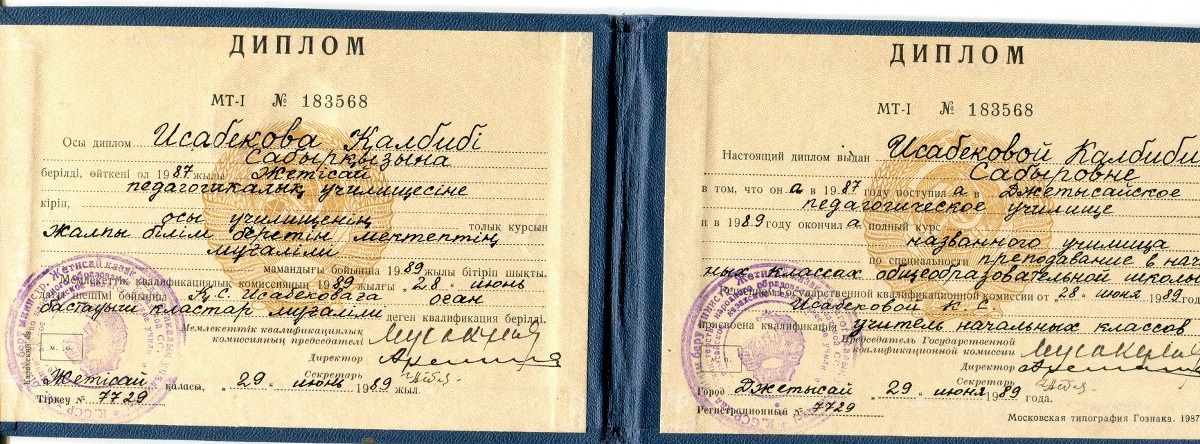 ДИПЛОМ
МТ-I № 183568
Осы диплом Исабекова Калбибі
Сабырқызына
берілді, өйткені ол 1987 жылы Жетісай
педагогикалық училищесіне
кіріп,
осы училищенің толық курсын
жалпы білім беретін мектептің
мұғалімі
мамандығы бойынша 1989 жылы бітіріп шықты.
Мемлекеттік квалификациялық комиссияның 1989 жылғы "28" июнь
дағы шешімі бойынша К.С. Исабековаға осан
бастауыш кластар мұғалімі деген квалификация берілді.
Мемлекеттік квалификациялық
комиссияның председателі
Директор
Секретарь
Жетісай қаласы, "29" июнь 1989 жыл.
Тіркеу № 7729
ДИПЛОМ
МТ-I № 183568
Настоящий диплом выдан Исабековой Калбиби
Сабыровне
в том, что он а в 1987 году поступил а в Джетысайское
педагогическое училище
и в 1989 году окончил а полный курс
названного училища
по специальности преподавание в нач
ных классах общеобразовательной школы
Решением Государственной квалификационной комиссии от "28" июня 1989
Исабековой К. С.
присвоена квалификация учитель начальных классов
Председатель Государственной
квалификационной комиссии
Директор
Секретарь
Город Джетысай "29" июня 1989 года.
Регистрационный № 7729
Московская типография Гознака. 1987